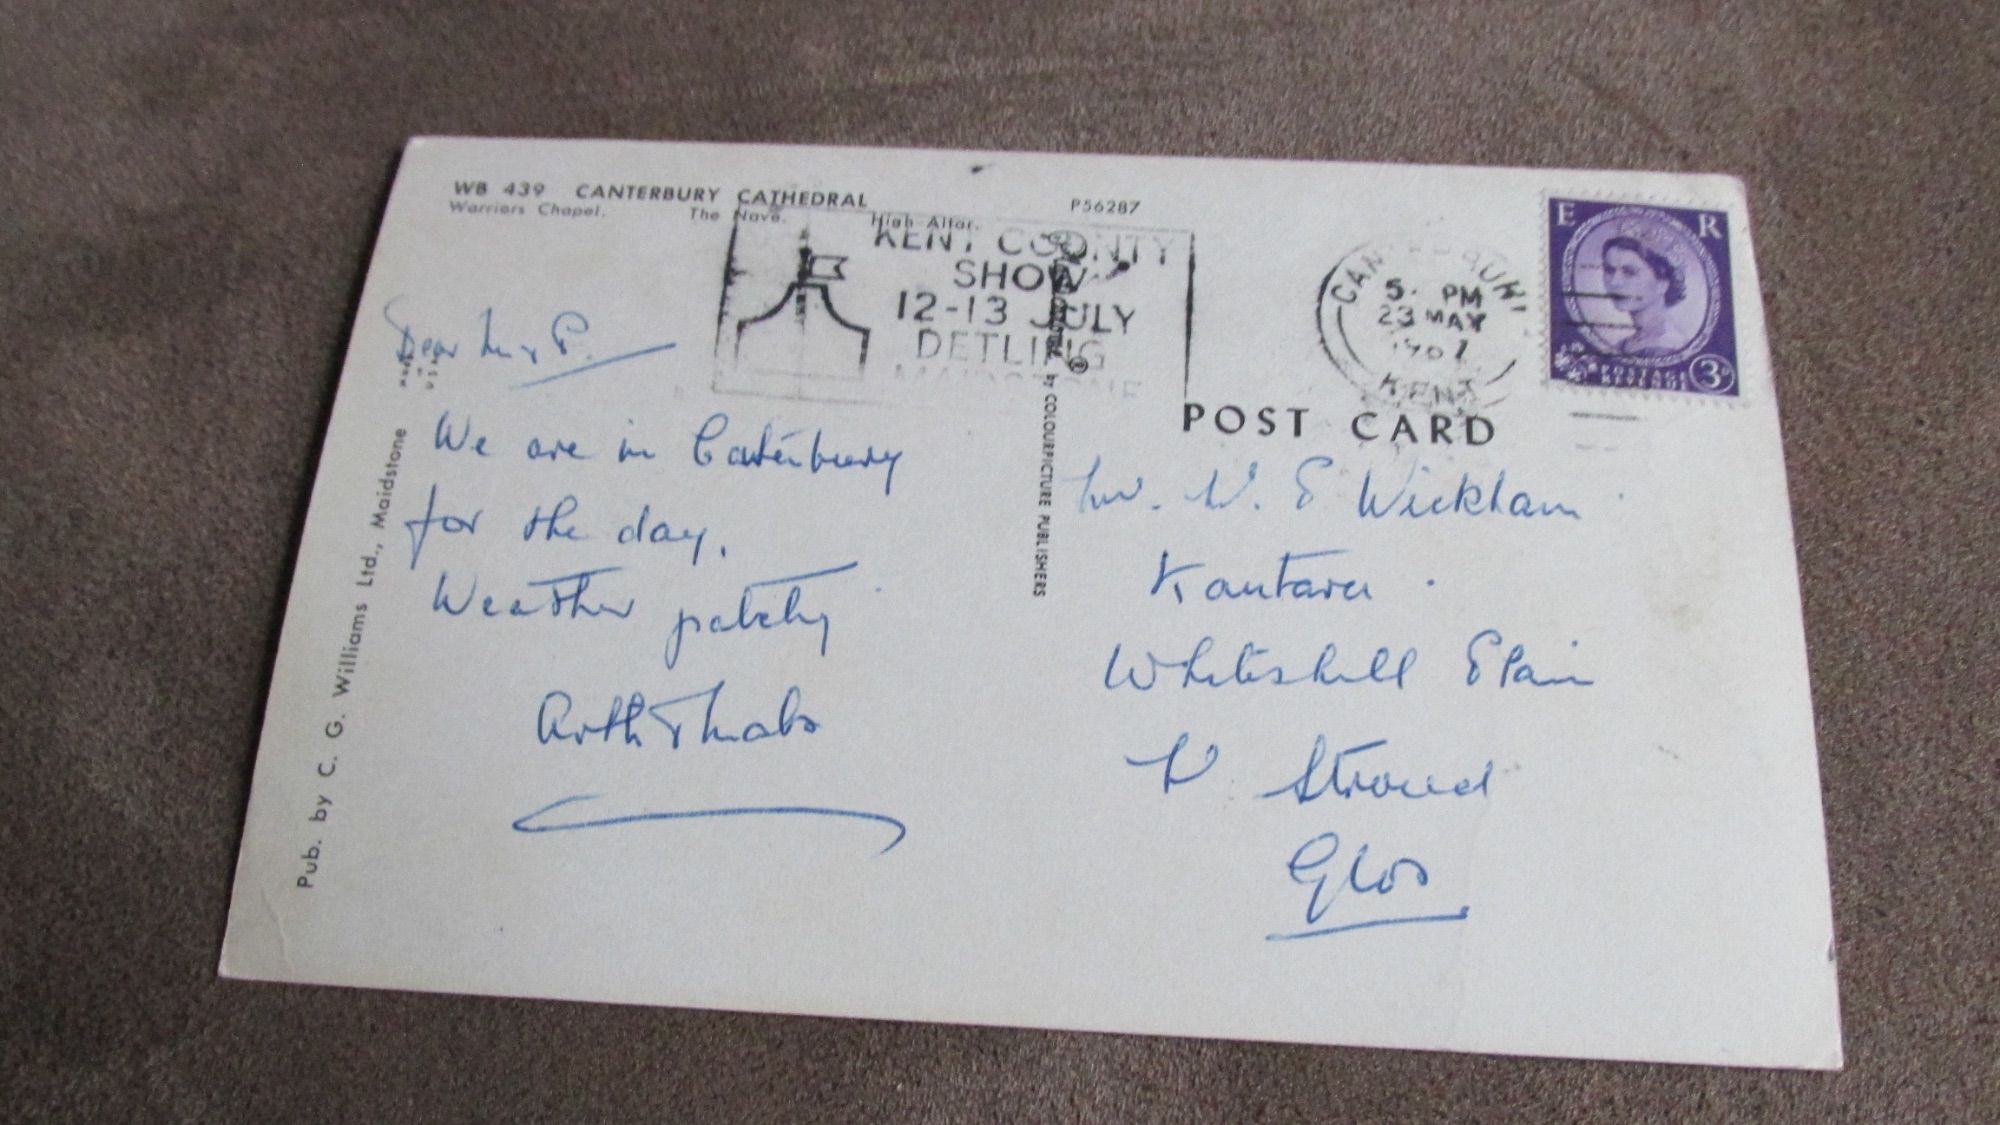 WB 439 CANTERBURY CATHEDRAL
Warriors Chapel. The Nave. High Altar.
P56287
KENT COUNTY
SHOW
12-13 JULY
DETLING
MAIDSTONE
CANTERBURY
5. PM
23 MAY
1967
KENT
E R
POSTAGE
REVENUE
3D
POST CARD
Dear
We are in Canterbury
for the day.
Weather patchy
W. E Wickham
Kantara.
Whiteshill
Stroud
Glos
by COLOURPICTURE PUBLISHERS
Pub. by C. G. Williams Ltd., Maidstone